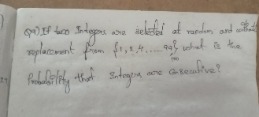 Q01) If two Integers are selected at random and without
replacement from {1, 2, 4, .... 99} what is the
100
Probability that Integers are Consecutive?